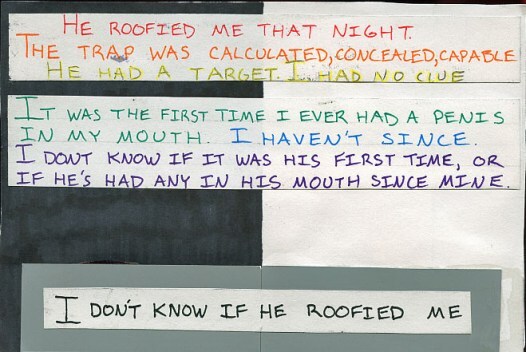 HE ROOFIED ME THAT NIGHT.
THE TRAP WAS CALCULATED, CONCEALED, CAPABLE
HE HAD A TARGET. I HAD NO CLUE
IT WAS THE FIRST TIME I EVER HAD A PENIS
IN MY MOUTH. I HAVEN'T SINCE.
I DONT KNOW IF IT WAS HIS FIRST TIME, OR
IF HE'S HAD ANY IN HIS MOUTH SINCE MINE.
I DON'T KNOW IF HE ROOFIED ME